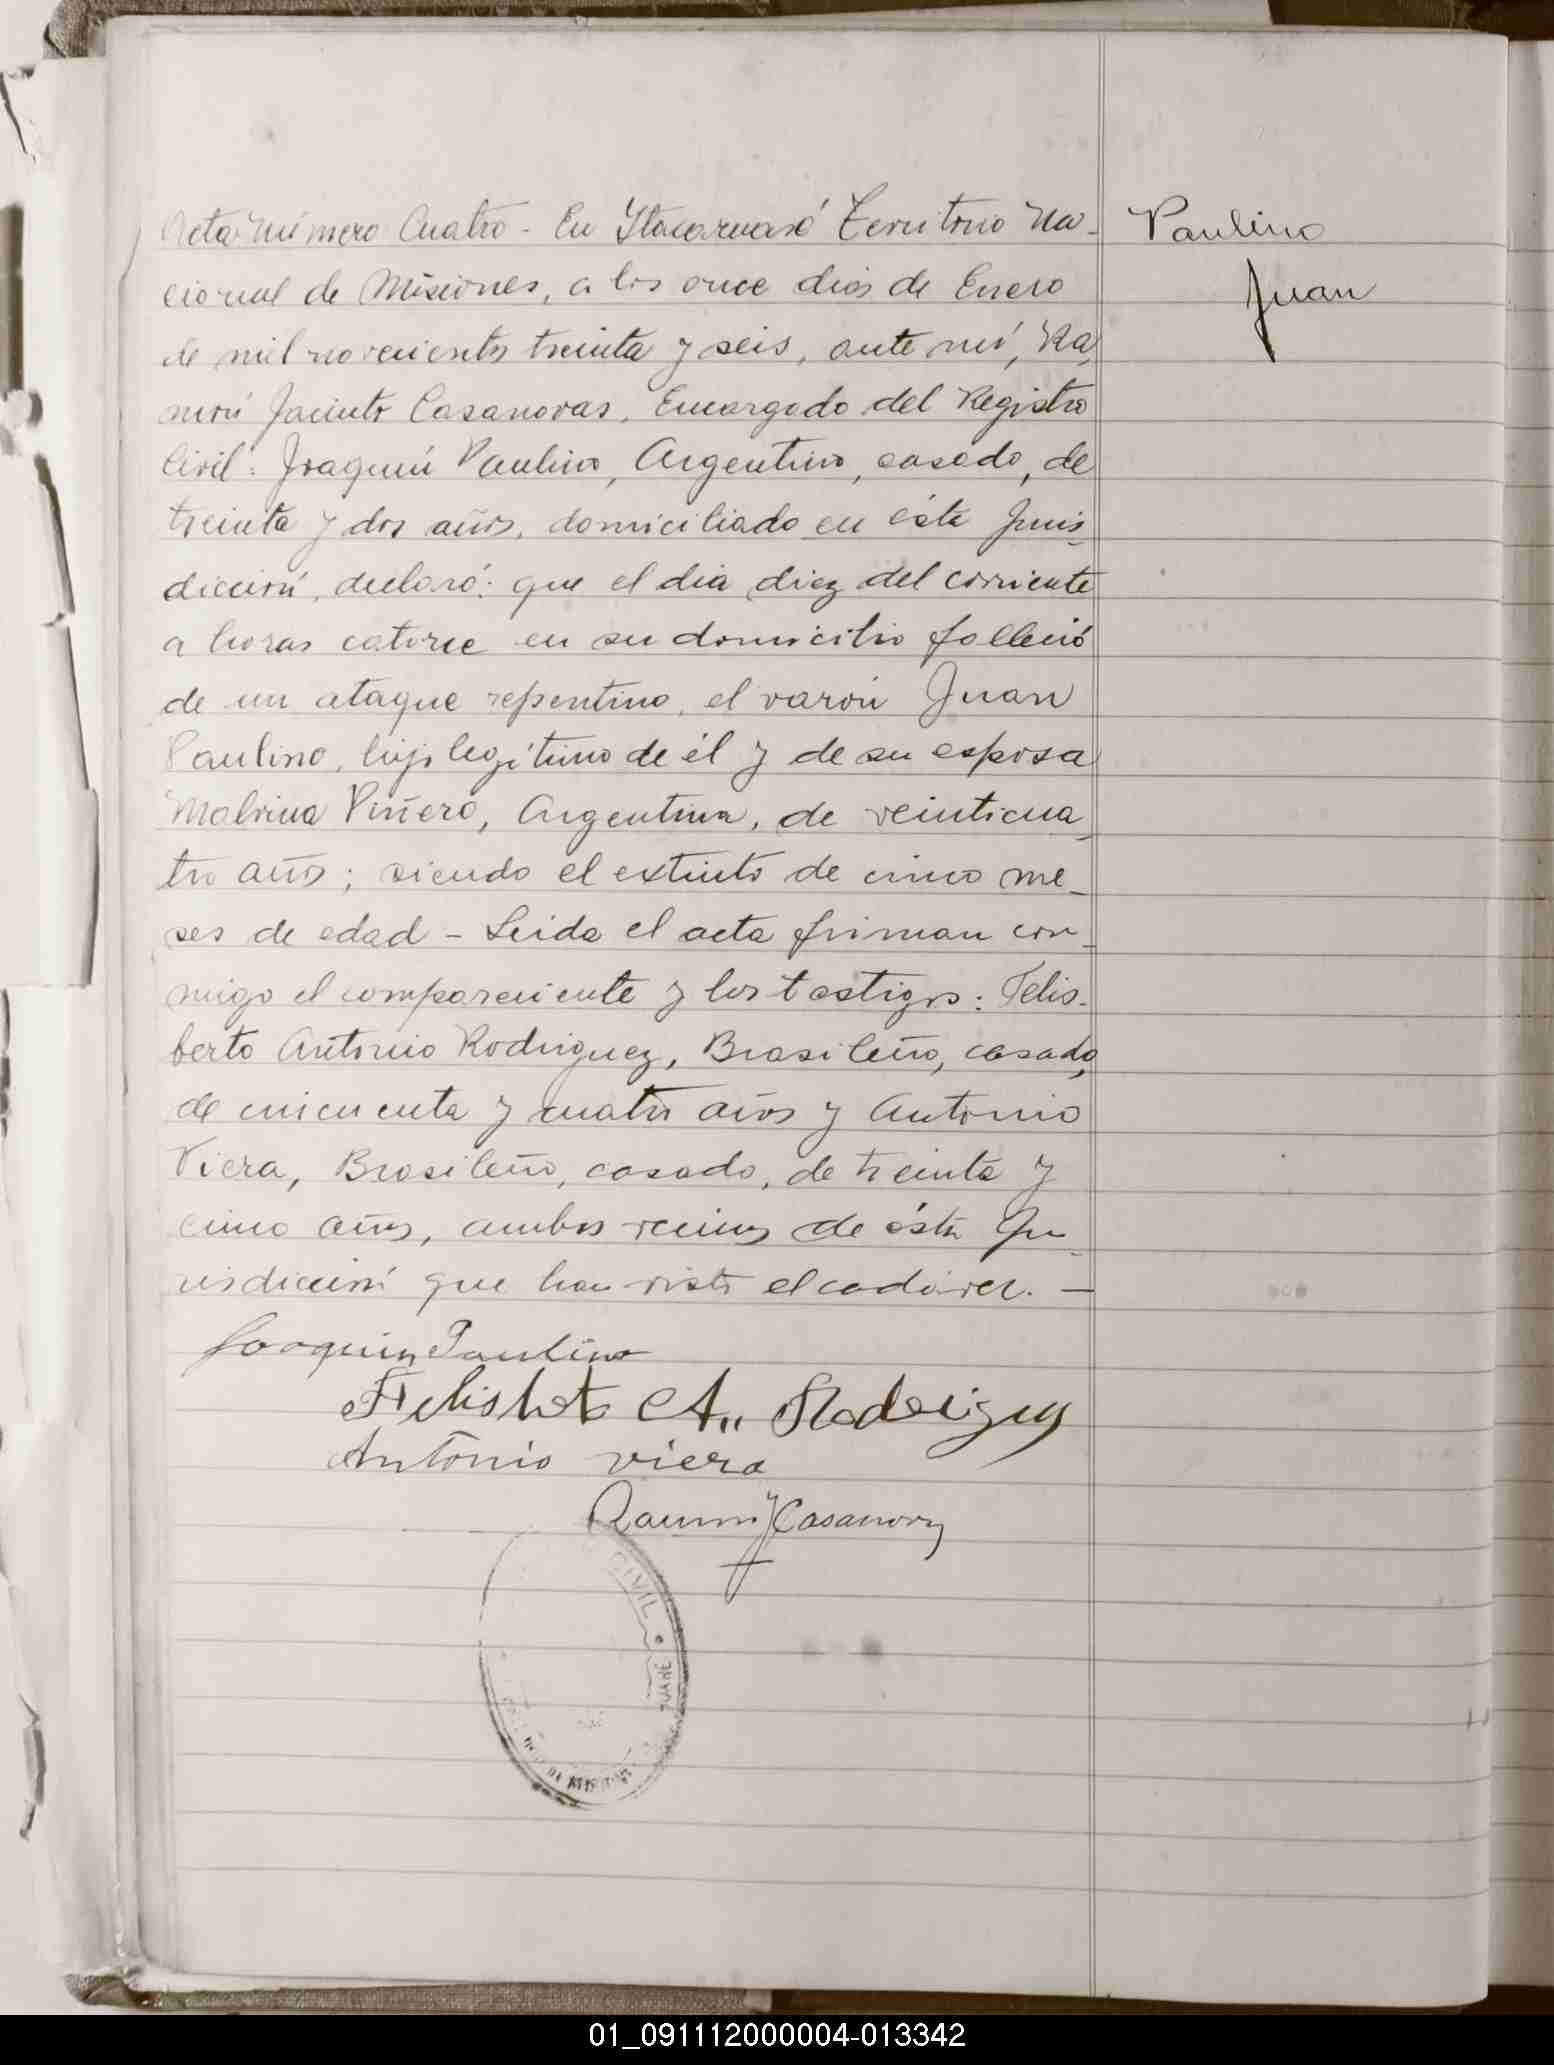 Acta Número Cuatro - En Itacaruaré Territorio Na-
cional de Misiones, a los once dias de Enero
de mil novecientos treinta y seis, ante mí, Ra-
món Jacinto Casanovas, Encargado del Registro
Civil: Joaquín Paulino, Argentino, casado, de
treinta y dos años, domiciliado en ésta juris-
dicción, declaró: que el dia diez del corriente
a horas catorce en su domicilio falleció
de un ataque repentino, el varón Juan
Paulino, hijo legítimo de él y de su esposa
Malvina Piñero, Argentina, de veinticua-
tro años; siendo el extinto de cinco me-
ses de edad - Leida el acta firman con-
migo el compareciente y los testigos: Felis-
berto Antonio Rodriguez, Brasileño, casado,
de cincuenta y cuatro años y Antonio
Viera, Brasileño, casado, de treinta y
cinco años, ambos vecinos de ésta ju-
risdicción que han visto el cadáver. -
Paulino
Juan
Joaquin Paulino
Felisberto A. Rodriguez
Antonio viera
Ramón J Casanovas
CIVIL
01_091112000004-013342